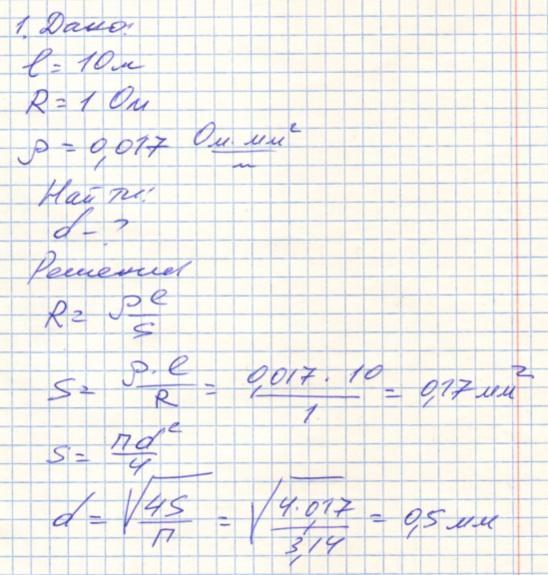 1. Дано:
l = 10 м
R = 1 Ом
ρ = 0,017 Ом·мм²/м
Найти:
d - ?
Решения
R = ρl/S
S = ρ·l/R = 0,017 · 10/1 = 0,17 мм²
S = πd²/4
d = √(4S/π) = √(4·017/3,14) = 0,5 мм